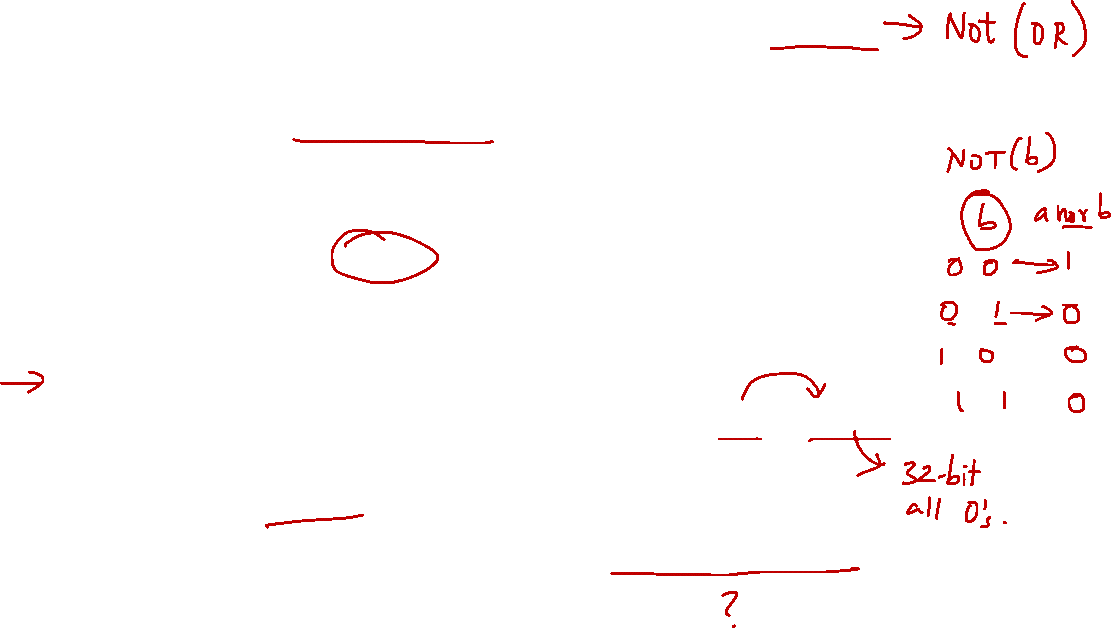 → Not (OR)
NOT(b)
b a nor b
0 0 → 1
0 1 → 0
1 0 0
1 1 0
32-bit
all 0's.
?